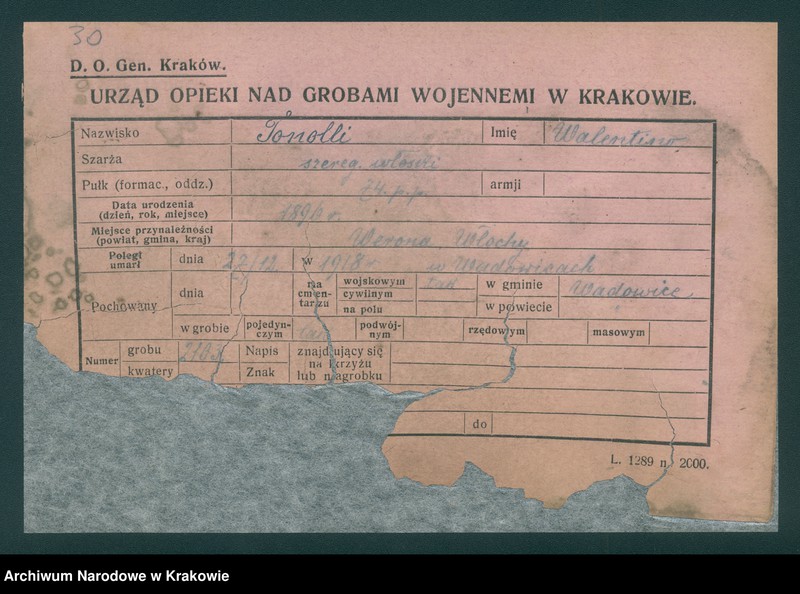 30
D. O. Gen. Kraków.
URZĄD OPIEKI NAD GROBAMI WOJENNEMI W KRAKOWIE.
Nazwisko Tonolli Imię Walentino
Szarża szereg. włoski
Pułk (formac., oddz.) 74. p.p. armji
Data urodzenia (dzień, rok, miejsce) 1890 r.
Miejsce przynależności (powiat, gmina, kraj) Werona, Włochy
Poległ umarł dnia 27/12 w 1918 r. w Wadowicach
Pochowany dnia na cmen- tarzu wojskowym tak cywilnym na polu w gminie Wadowice w powiecie "
w grobie pojedyn- czym tak podwój- nym rzędowym masowym
Numer grobu kwatery Napis Znak znajdujący się na krzyżu lub nagrobku
do
L. 1289 n. 2000.
Archiwum Narodowe w Krakowie